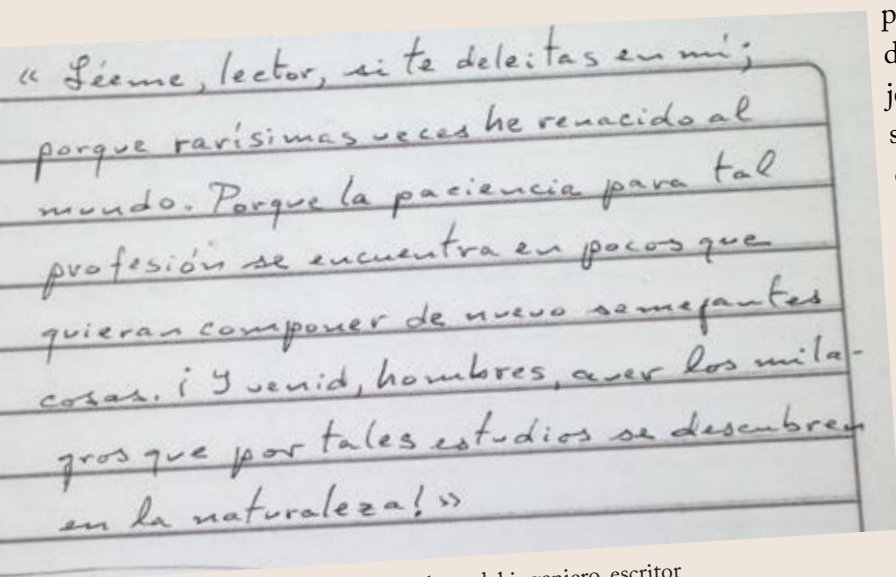 « Léeme, lector, si te deleitas en mí;
porque rarísimas veces he renacido al
mundo. Porque la paciencia para tal
profesión se encuentra en pocos que
quieran componer de nuevo semejantes
cosas. ¡Y venid, hombres, a ver los mila-
gros que por tales estudios se descubren
en la naturaleza! »
escritor